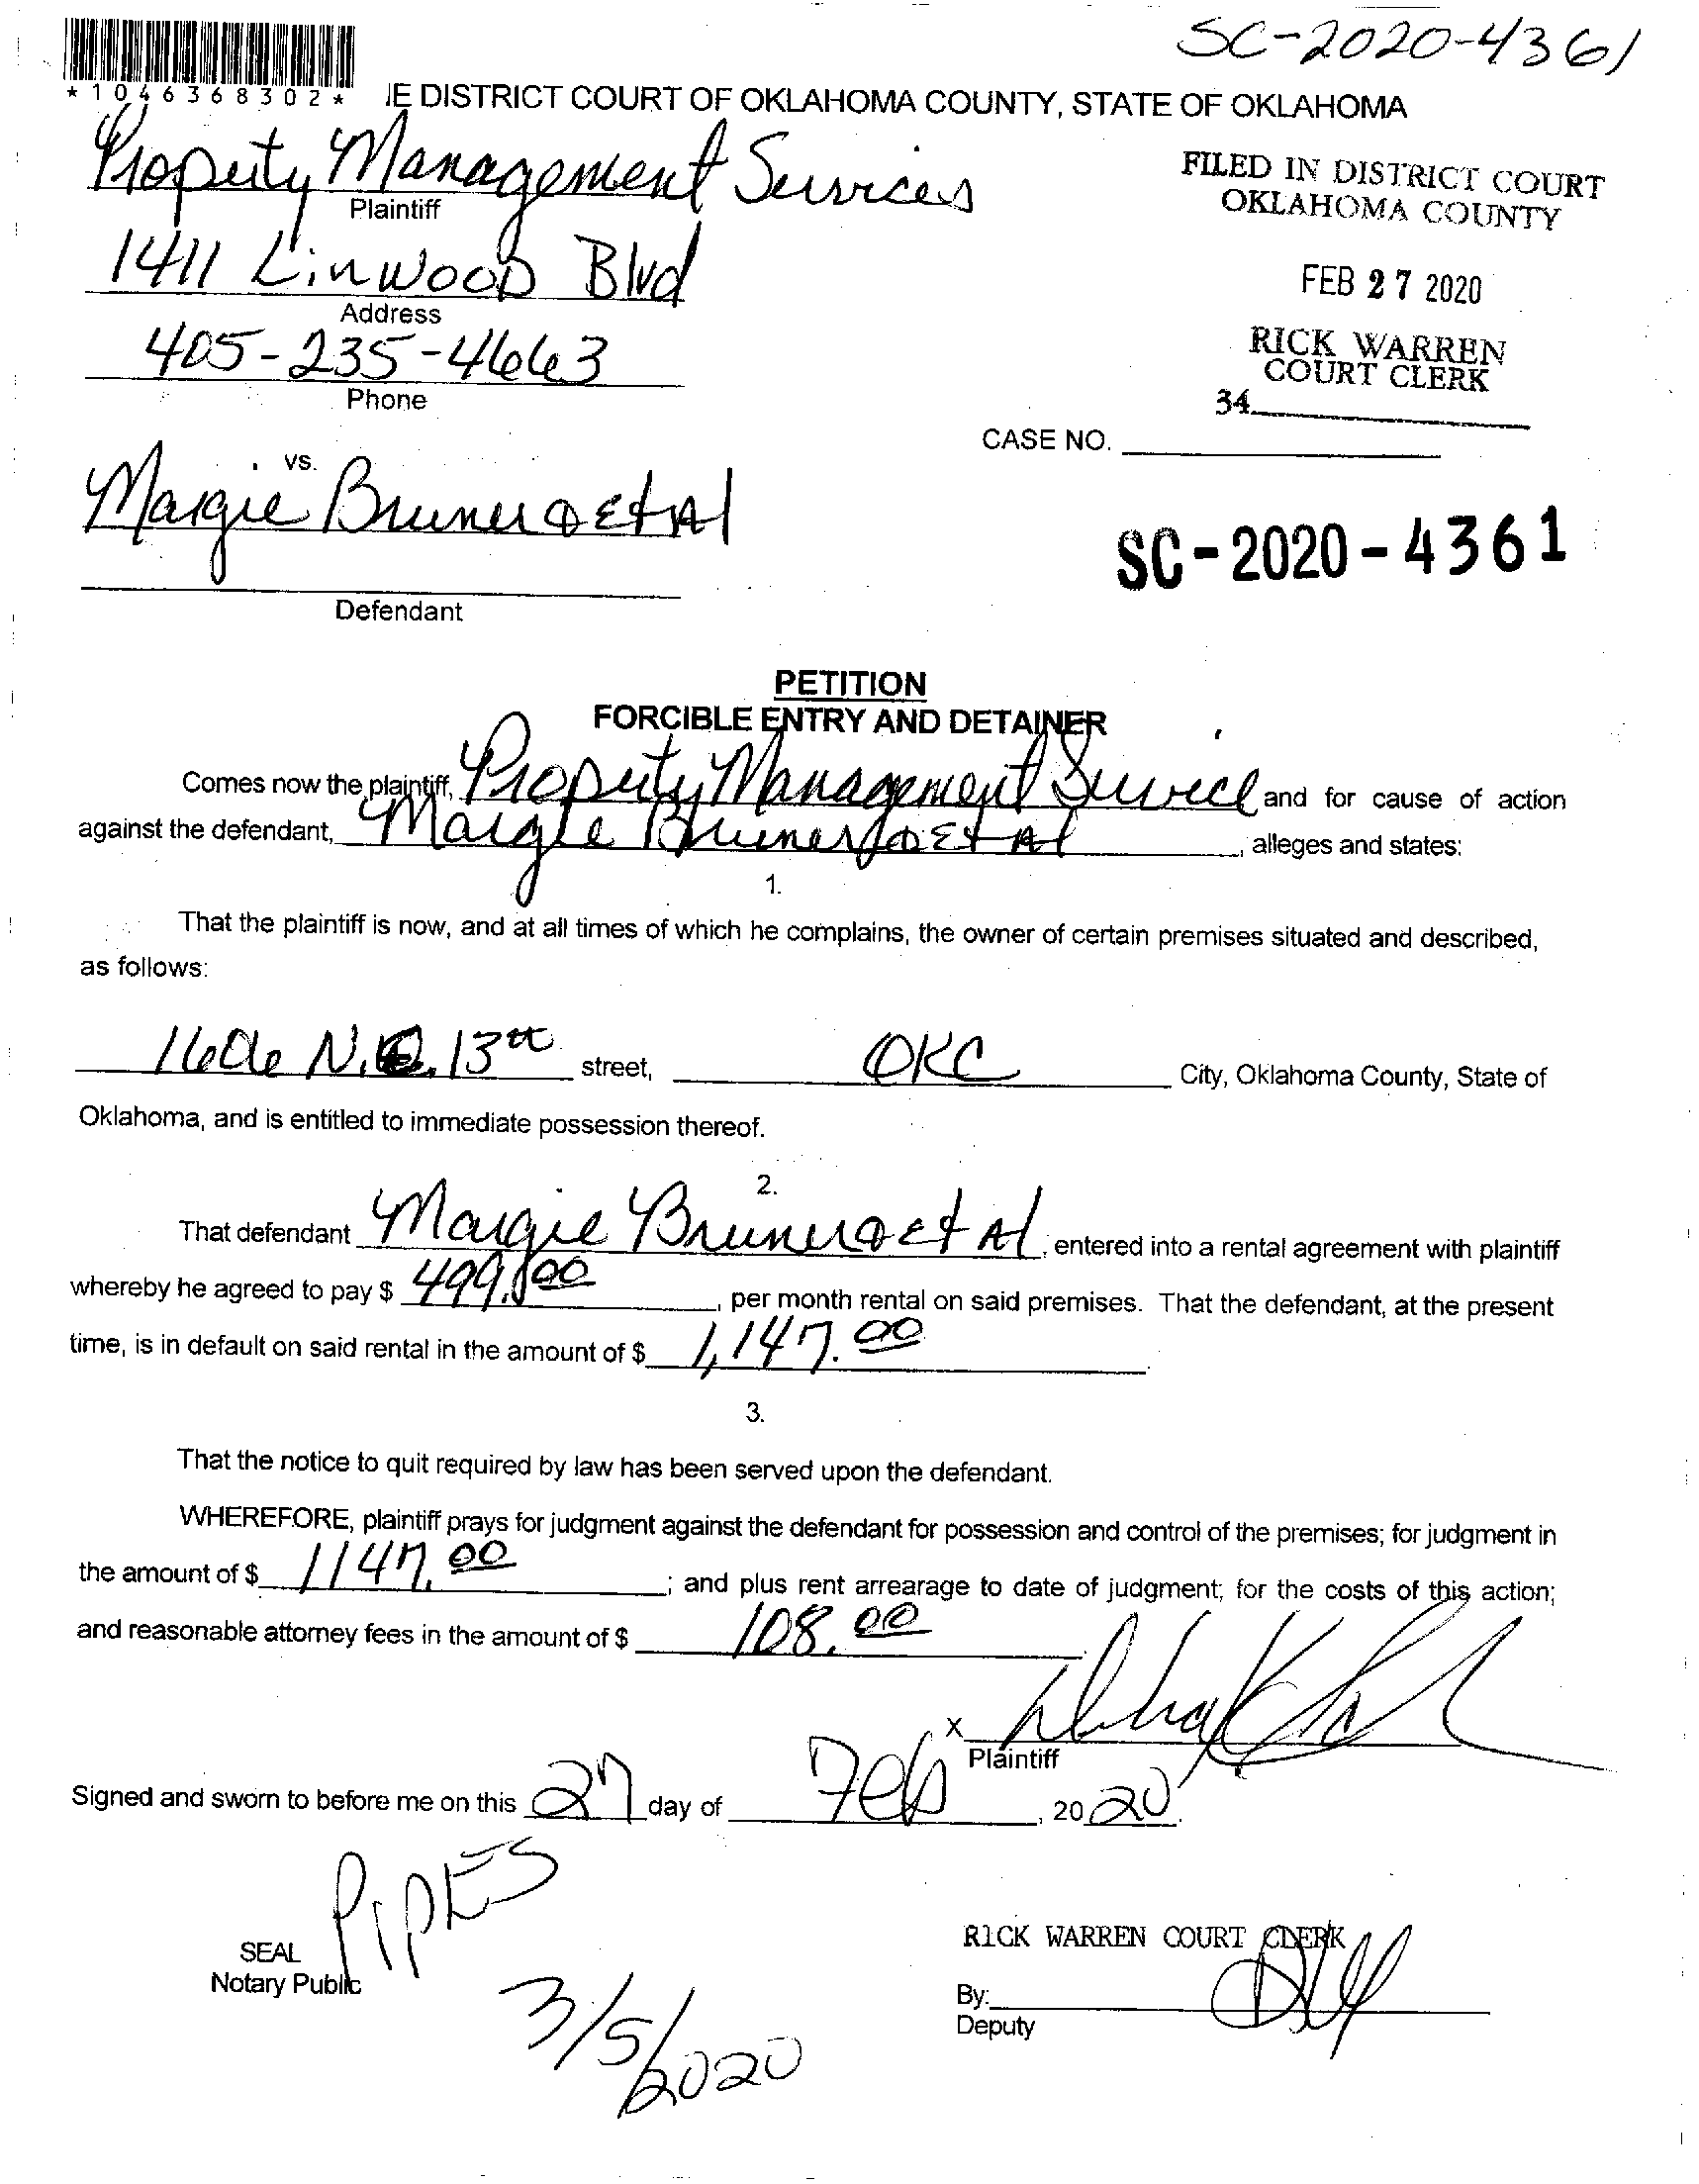 SC-2020-4361
*1046368302*
IE DISTRICT COURT OF OKLAHOMA COUNTY, STATE OF OKLAHOMA
Property Management Services
Plaintiff
FILED IN DISTRICT COURT
OKLAHOMA COUNTY
1411 Linwood Blvd
Address
FEB 27 2020
405-235-4663
Phone
RICK WARREN
COURT CLERK
34
CASE NO.
vs.
Margie Bruner & Et Al
Defendant
SC-2020-4361
PETITION
FORCIBLE ENTRY AND DETAINER
Comes now the plaintiff, Property Management Service and for cause of action
against the defendant, Margie Bruner & Et Al, alleges and states:
1.
That the plaintiff is now, and at all times of which he complains, the owner of certain premises situated and described,
as follows:
N.E. 13th street, OKC City, Oklahoma County, State of
Oklahoma, and is entitled to immediate possession thereof.
2.
That defendant Margie Bruner & Et Al, entered into a rental agreement with plaintiff
whereby he agreed to pay $ 499.00, per month rental on said premises. That the defendant, at the present
time, is in default on said rental in the amount of $ 1,147.00.
3.
That the notice to quit required by law has been served upon the defendant.
WHEREFORE, plaintiff prays for judgment against the defendant for possession and control of the premises; for judgment in
the amount of $ 1147.00; and plus rent arrearage to date of judgment; for the costs of this action;
and reasonable attorney fees in the amount of $ 108.00
X
Plaintiff
Signed and sworn to before me on this 27 day of Feb, 2020.
PipES
SEAL
Notary Public
3/5/2020
RICK WARREN COURT CLERK
By:
Deputy